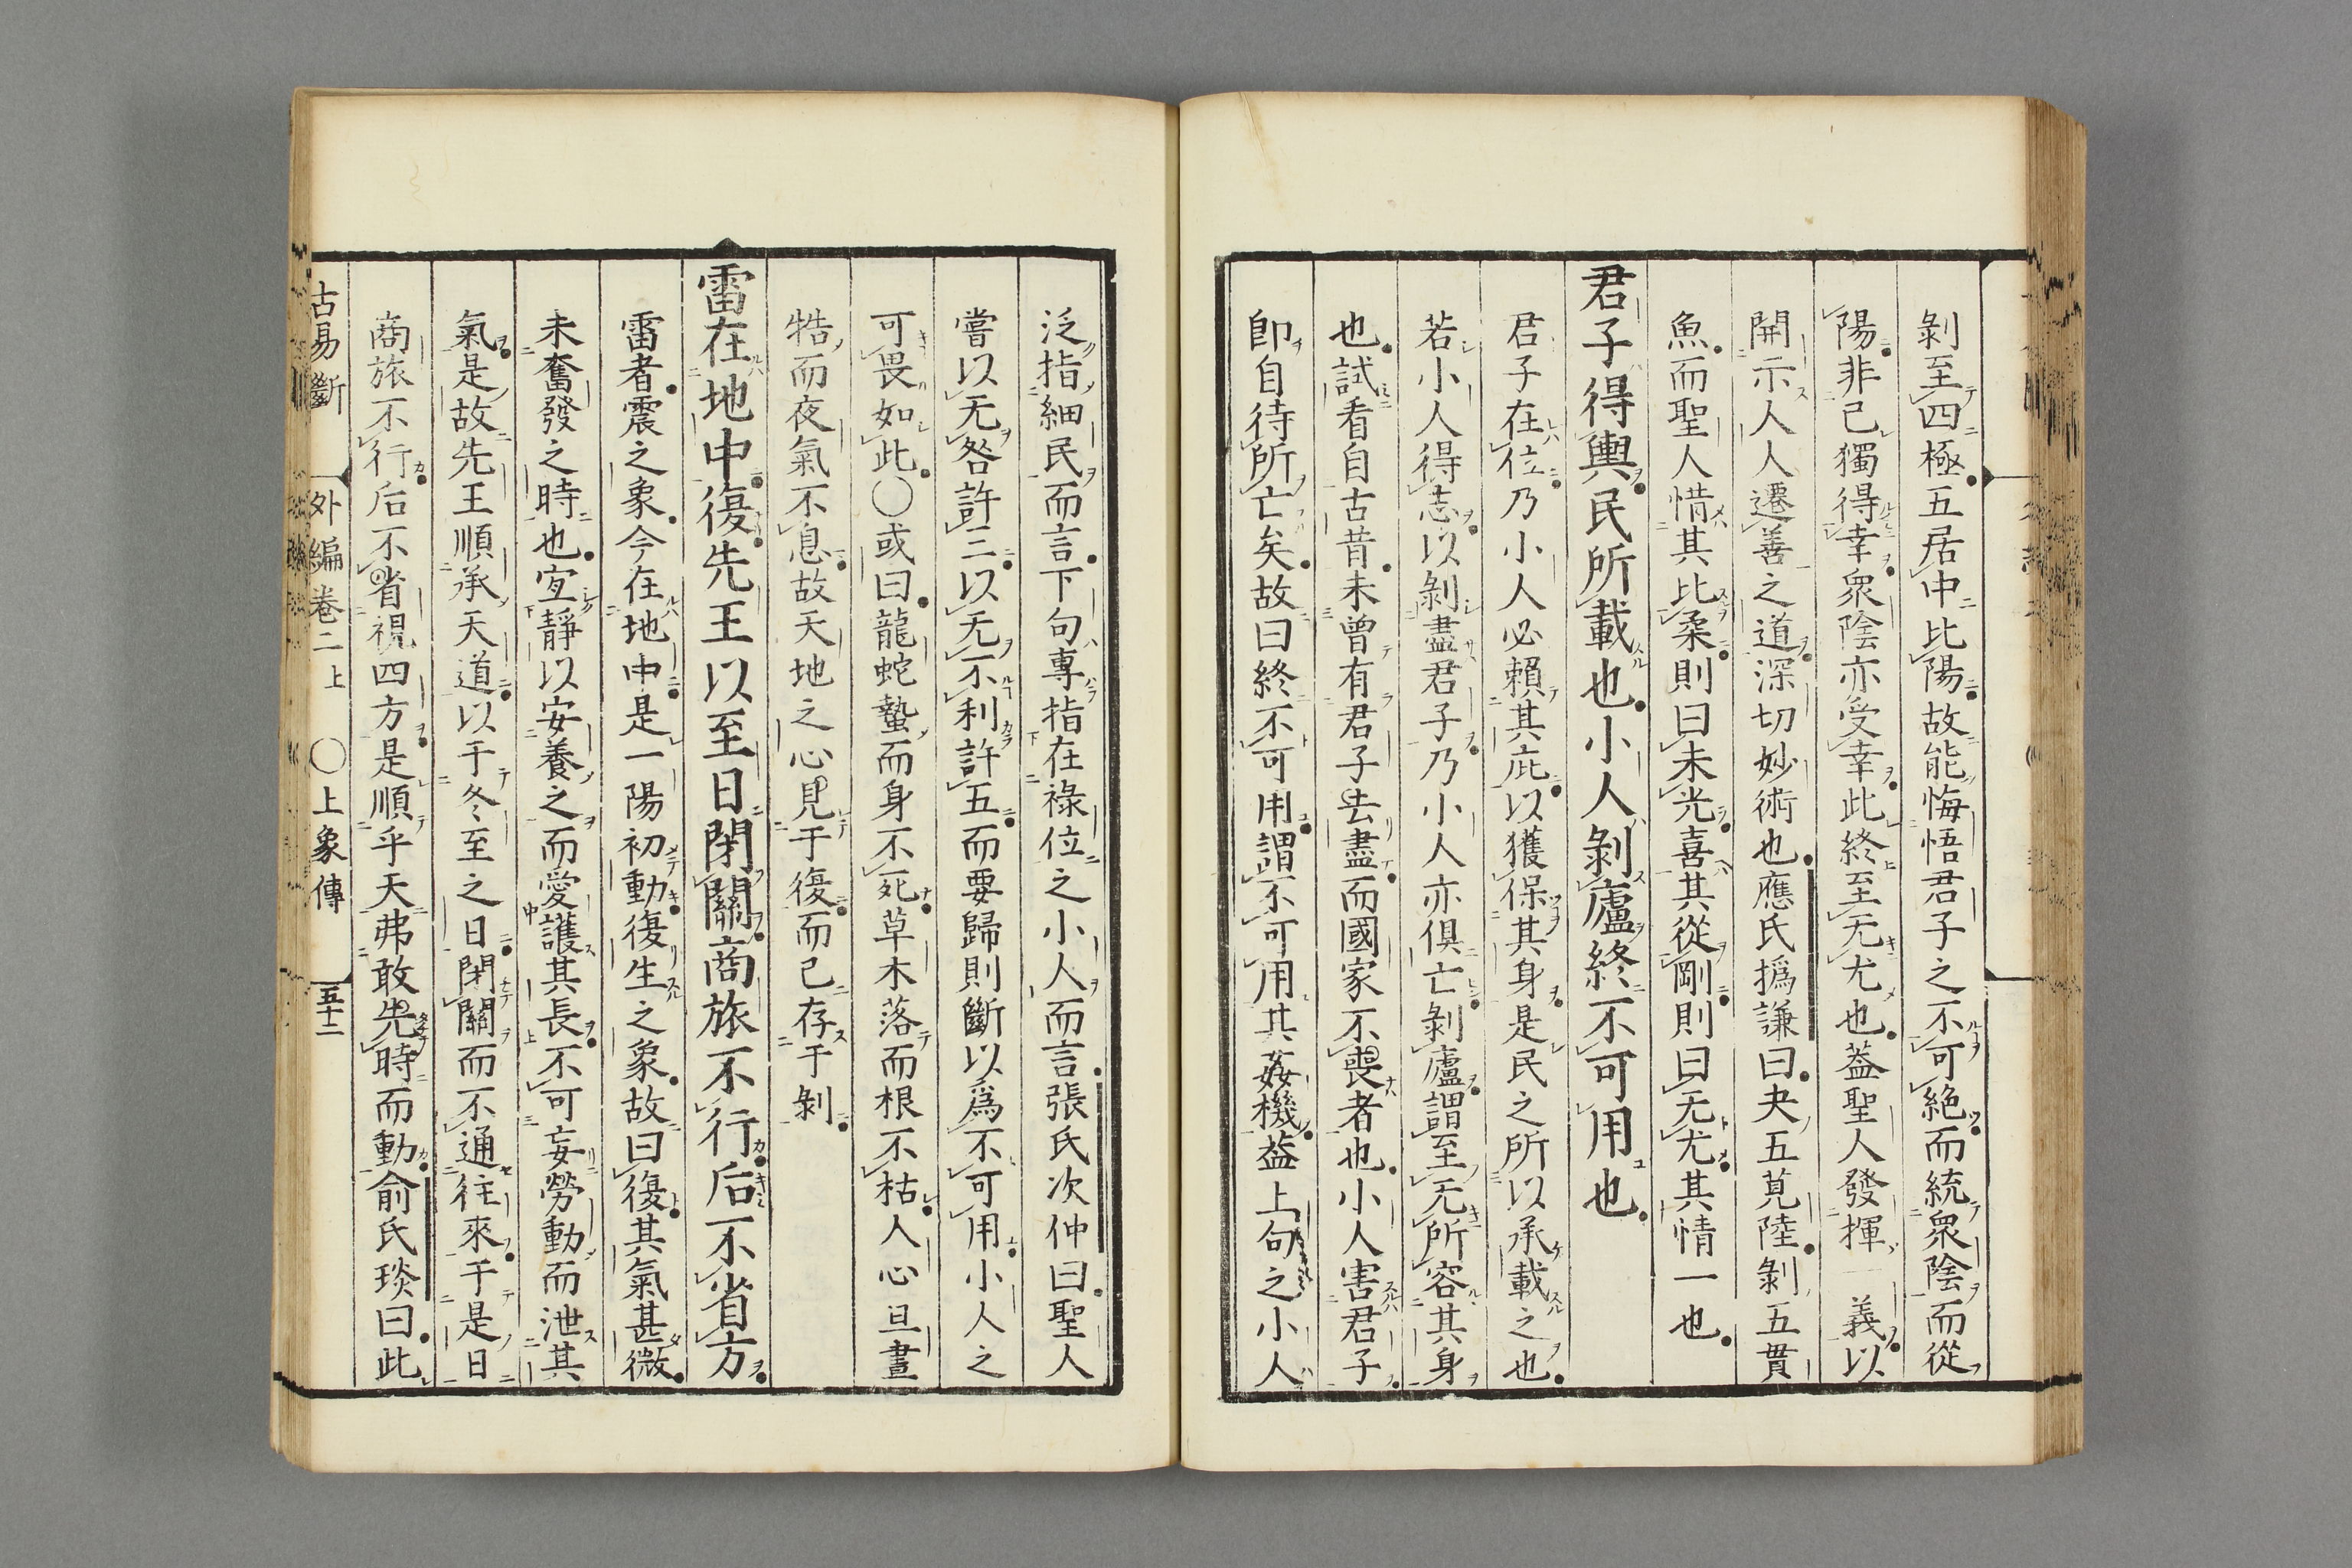 剝至四極五居中比陽故能悔悟君子之不可絶而統衆陰而從
陽非已獨得幸衆陰亦受幸此終至无尤也葢聖人發揮一義以
開示人人遷善之道深切妙術也應氏撝謙曰夬五莧陸剝五貫
魚而聖人惜其比柔則曰未光喜其從剛則曰无尤其情一也
君子得輿民所載也小人剝廬終不可用也
君子在位乃小人必賴其庇以獲保其身是民之所以承載之也
若小人得志以剝盡君子乃小人亦俱亡剝廬謂至无所容其身
也試看自古昔未曾有君子去盡而國家不喪者也小人害君子
卽自待所亡矣故曰終不可用謂不可用其姦機葢上句之小人
泛指細民而言下句專指在祿位之小人而言張氏次仲曰聖人
嘗以无咎許三以无不利許五而要歸則斷以爲不可用小人之
可畏如此〇或曰龍蛇蟄而身不死草木落而根不枯人心旦晝
牿而夜氣不息故天地之心見于復而已存于剝
雷在地中復先王以至日閉關商旅不行后不省方
雷者震之象今在地中是一陽初動復生之象故曰復其氣甚微
未奮發之時也宐靜以安養之而愛護其長不可妄勞動而泄其
氣是故先王順承天道以于冬至之日閉關而不通往來于是日
商旅不行后不省視四方是順乎天弗敢先時而動俞氏琰曰此
古易斷 外編卷二上 〇上象傳 五十二